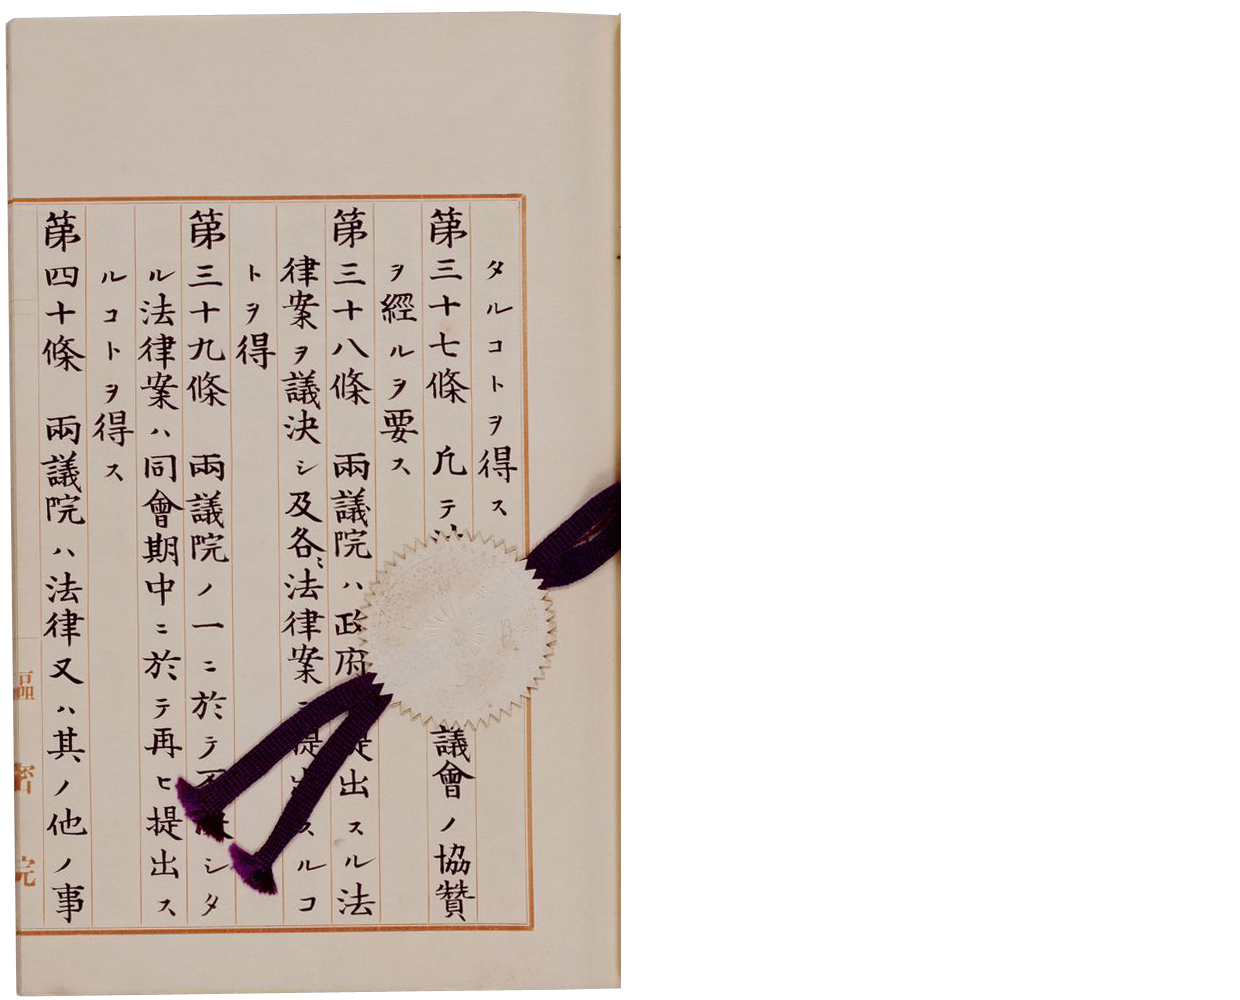 タルコトヲ得ス
第三十七條　凡テ議會ノ協賛
ヲ經ルヲ要ス
第三十八條　兩議院ハ政府提出スル法
律案ヲ議決シ及各〻法律案ヲ提出スルコ
トヲ得
第三十九條　兩議院ノ一ニ於テ否シタ
ル法律案ハ同會期中ニ於テ再ヒ提出ス
ルコトヲ得ス
第四十條　兩議院ハ法律又ハ其ノ他ノ事
密院